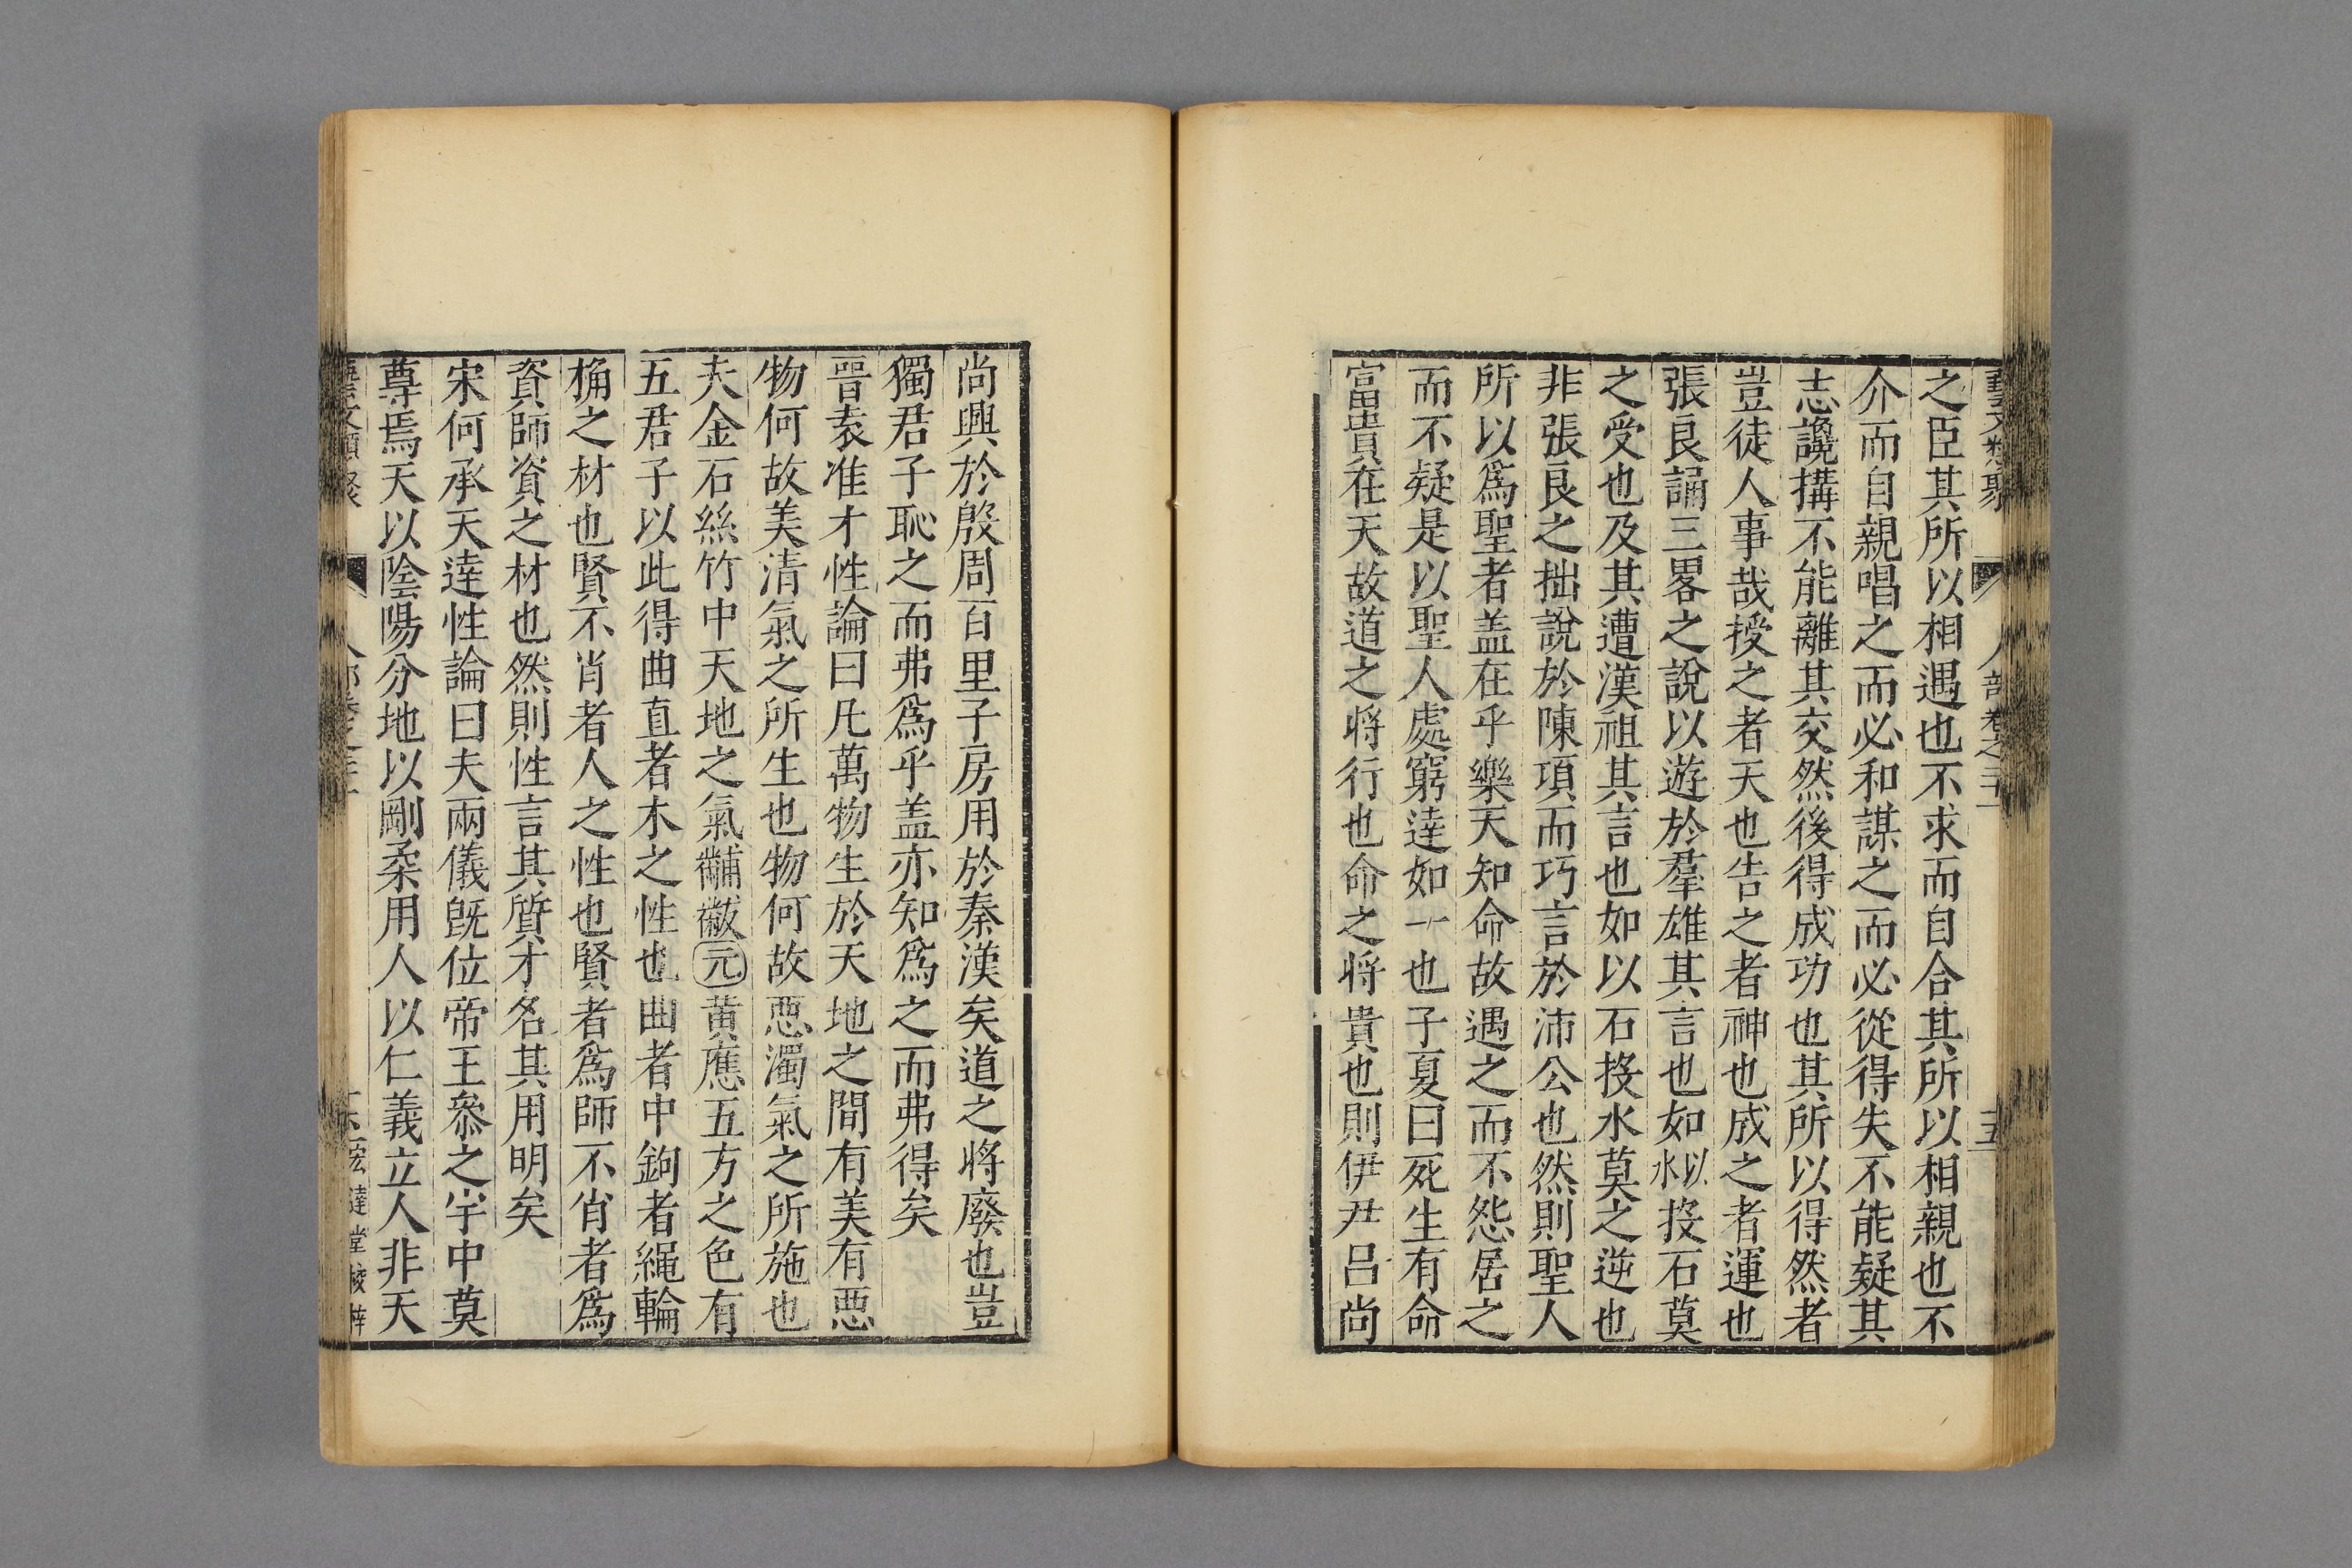 之臣其所以相遇也不求而自合其所以相親也不
介而自親唱之而必和謀之而必從得失不能疑其
志讒搆不能離其交然後得成功也其所以得然者
豈徒人事哉授之者天也告之者神也成之者運也
張良誦三畧之說以遊於羣雄其言也如以水投石莫
之受也及其遭漢祖其言也如以石投水莫之逆也
非張良之拙說於陳項而巧言於沛公也然則聖人
所以爲聖者盖在乎樂天知命故遇之而不怨居之
而不疑是以聖人處窮逹如一也子夏曰死生有命
富貴在天故道之將行也命之將貴也則伊尹呂尚
尚興於殷周百里子房用於秦漢矣道之將廢也豈
獨君子恥之而弗爲乎盖亦知爲之而弗得矣
晉袁准才性論曰凡萬物生於天地之間有美有惡
物何故美清氣之所生也物何故惡濁氣之所施也
夫金石絲竹中天地之氣黼黻元黃應五方之色有
五君子以此得曲直者木之性也曲者中鉤者繩輪
桷之材也賢不肖者人之性也賢者爲師不肖者爲
資師資之材也然則性言其質才名其用明矣
宋何承天逹性論曰夫兩儀旣位帝王叅之宇中莫
尊焉天以陰陽分地以剛柔用人以仁義立人非天